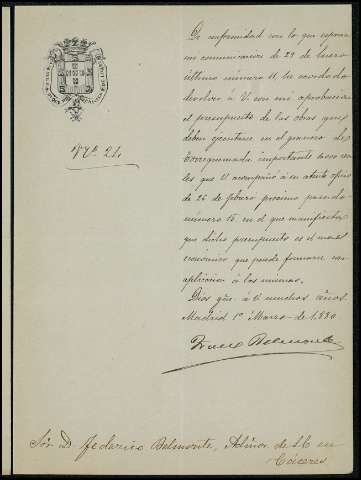 De conformidad con lo que espone
mi comunicacion de 29 de Enero
último número 11, he acordado
devolver á V. con mi aprobacion
el presupuesto de las obras que
deben ejecutarse en el granero de
Torrequemada importante reales
les que V. acompañó á su atento oficio
de 26 de febrero prócsimo pasado
número 15 en el que manifiesta
que dicho presupuesto es el mas
económico que puede formarse con
aplicacion á las mismas.
Dios gue. á V. muchos años.
Madrid 1º Marzo de 1.880.
Franco Belmonte
Nº 21.
Sór. D. Federico Belmonte, Admor. de S.E. en
Cáceres